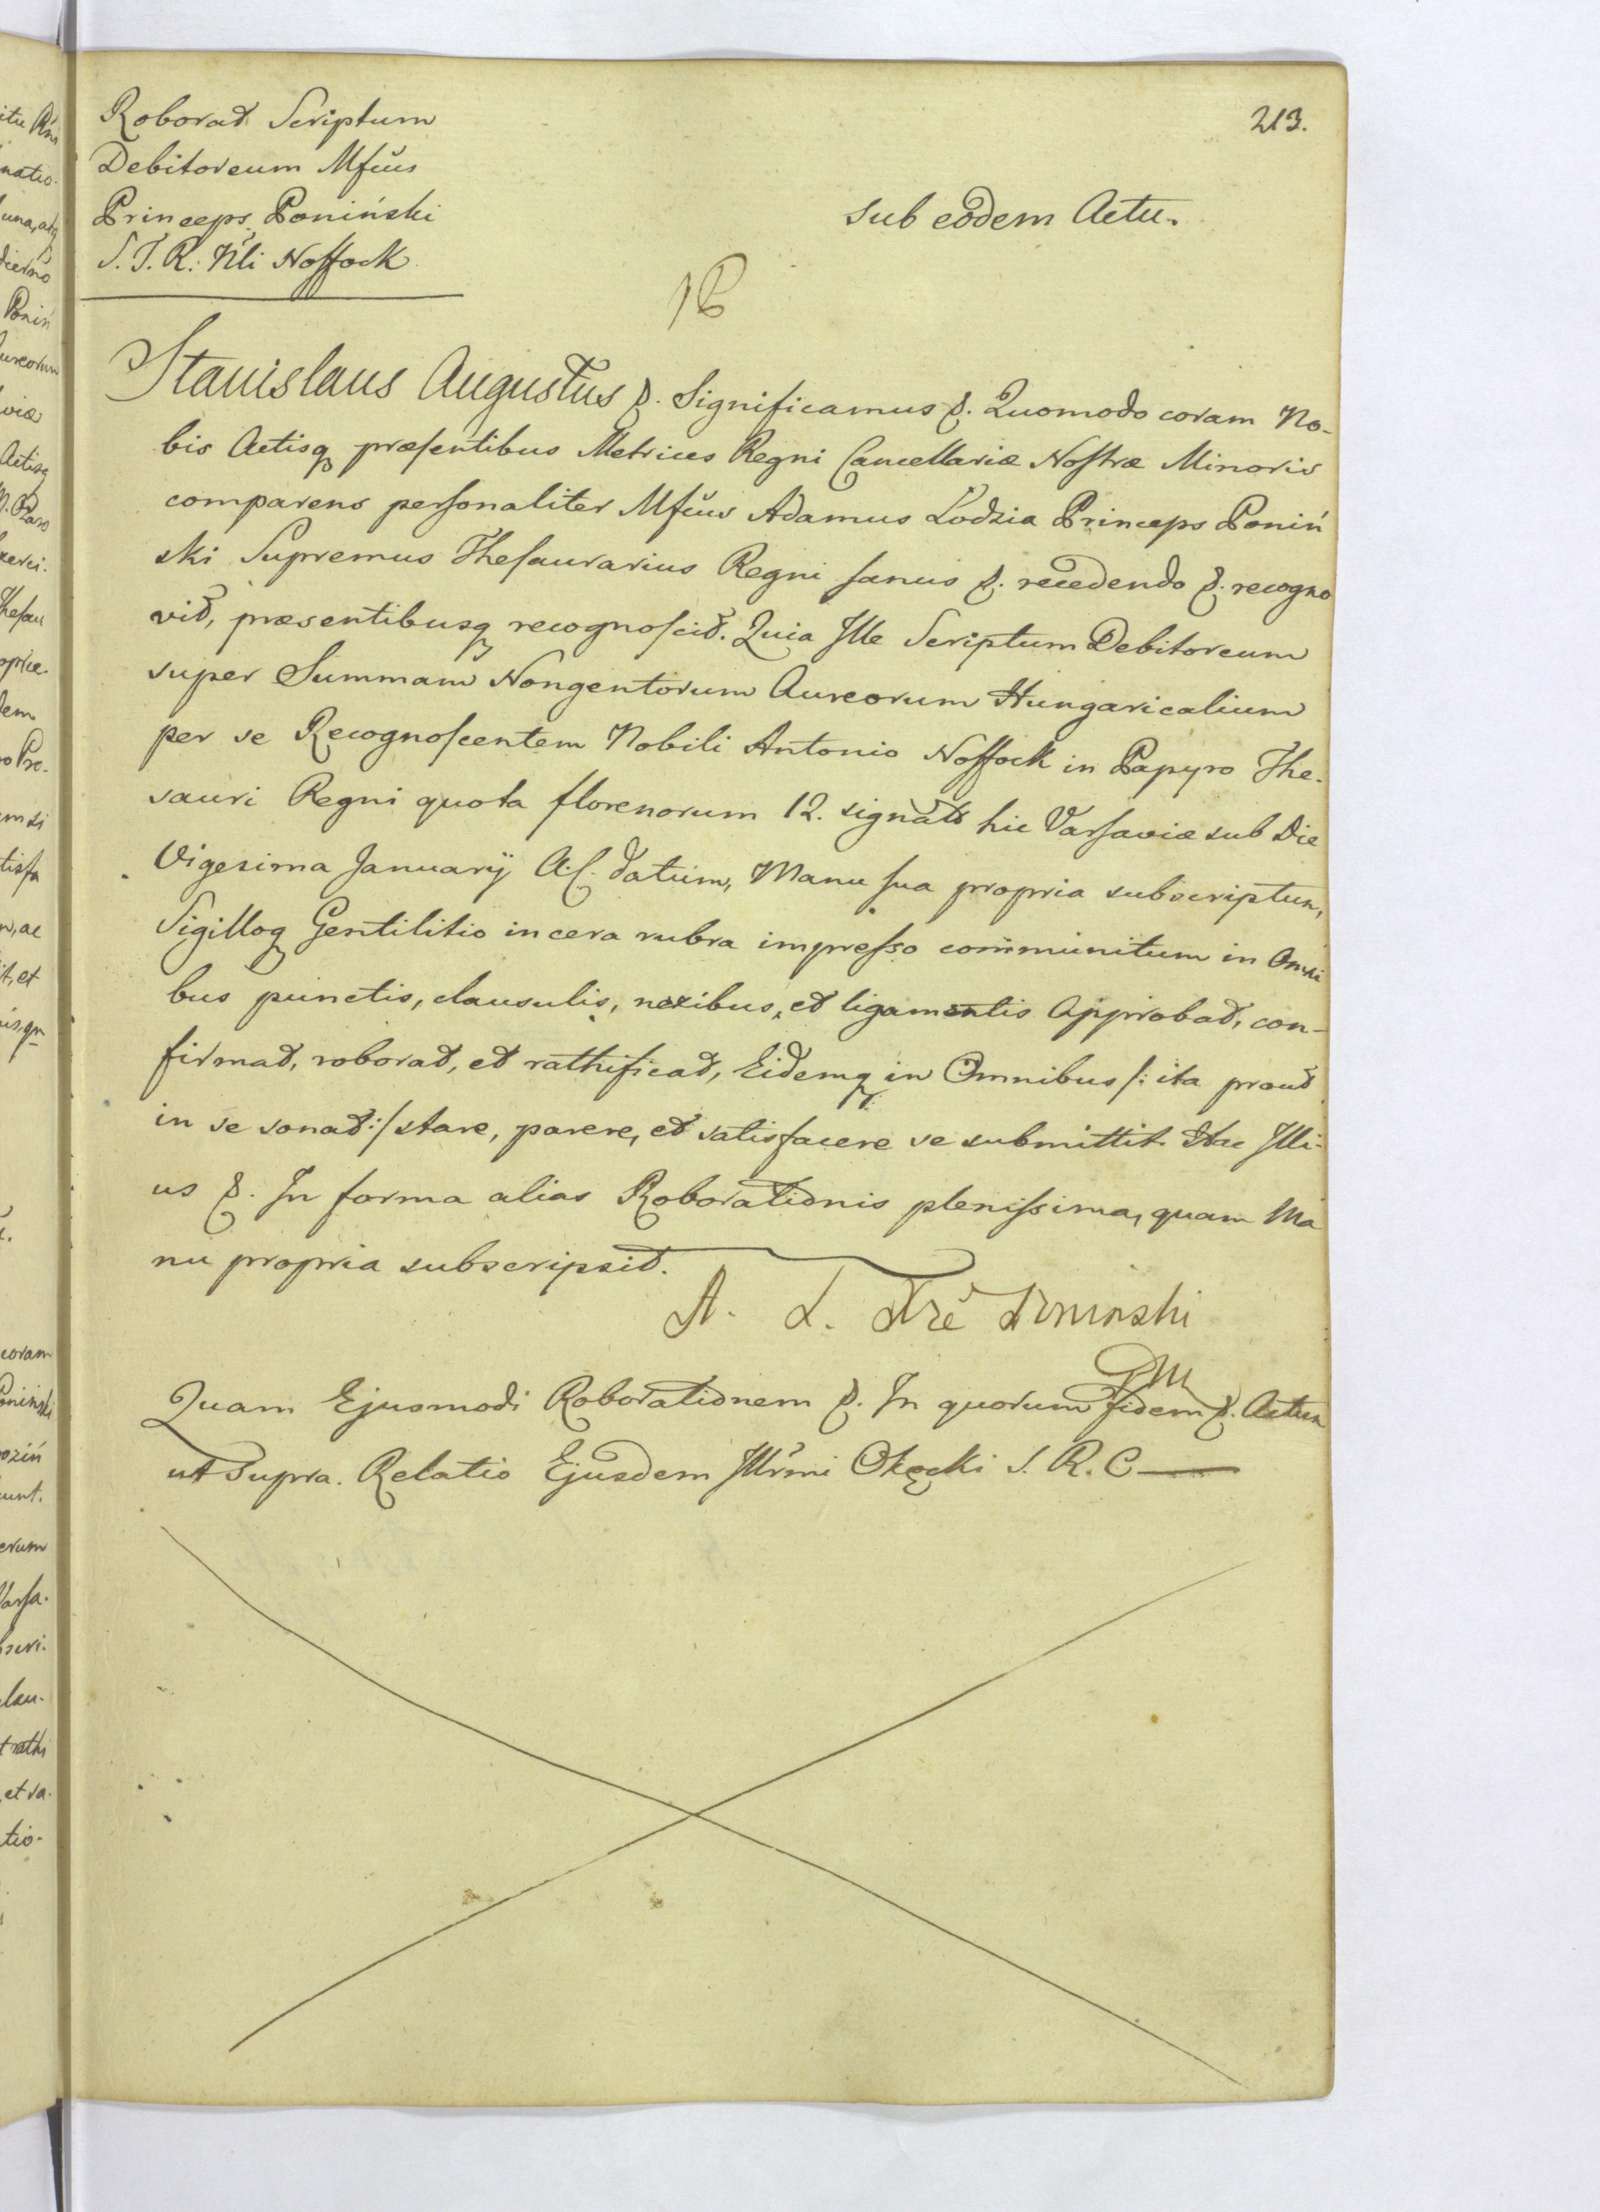 213.
Roborat Scriptum
Debitoreum Mfcus
Princeps Poniński
S. T. R: Nli Noffock
sub eodem Actu.
Stanislaus Augustus &. Significamus &. Quomodo coram No-
bis Actisq præsentibus Metrices Regni Cancellariæ Nostræ Minoris
comparens personaliter Mfcus Adamus Łodzia Princeps Poniń
ski Supremus Thesaurarius Regni sanus &. recedendo &. recogno
vit, præsentibusq recognoscit. Quia Ille Scriptum Debitoreum
super Summam Nongentorum Aureorum Hungaricalium
per se Recognoscentem Nobili Antonio Noffock in Papyro The-
sauri Regni quota florenorum 12. signato hic Varsaviæ sub Die
Vigesima Januarÿ A.C. datum, Manu sua propria subscriptum,
Sigilloq Gentilitio in cera rubra impresso communitum in Omni
bus punctis, clausulis, nexibus, et ligamentis Approbat, con-
firmat, roborat, et rathificat, Eidemq in Omnibus /: ita prout
in se sonat :/ stare, parere, et satisfacere se submittit. Hac Illi-
us &. In forma alias Roborationis plenissima, quam Ma
nu propria subscripsit.
A. L. Xżê Poninski
Quam Ejusmodi Roborationem &. In quorum fidem &. Actum
ut supra. Relatio Ejusdem Illrmi Okęcki S. R. C